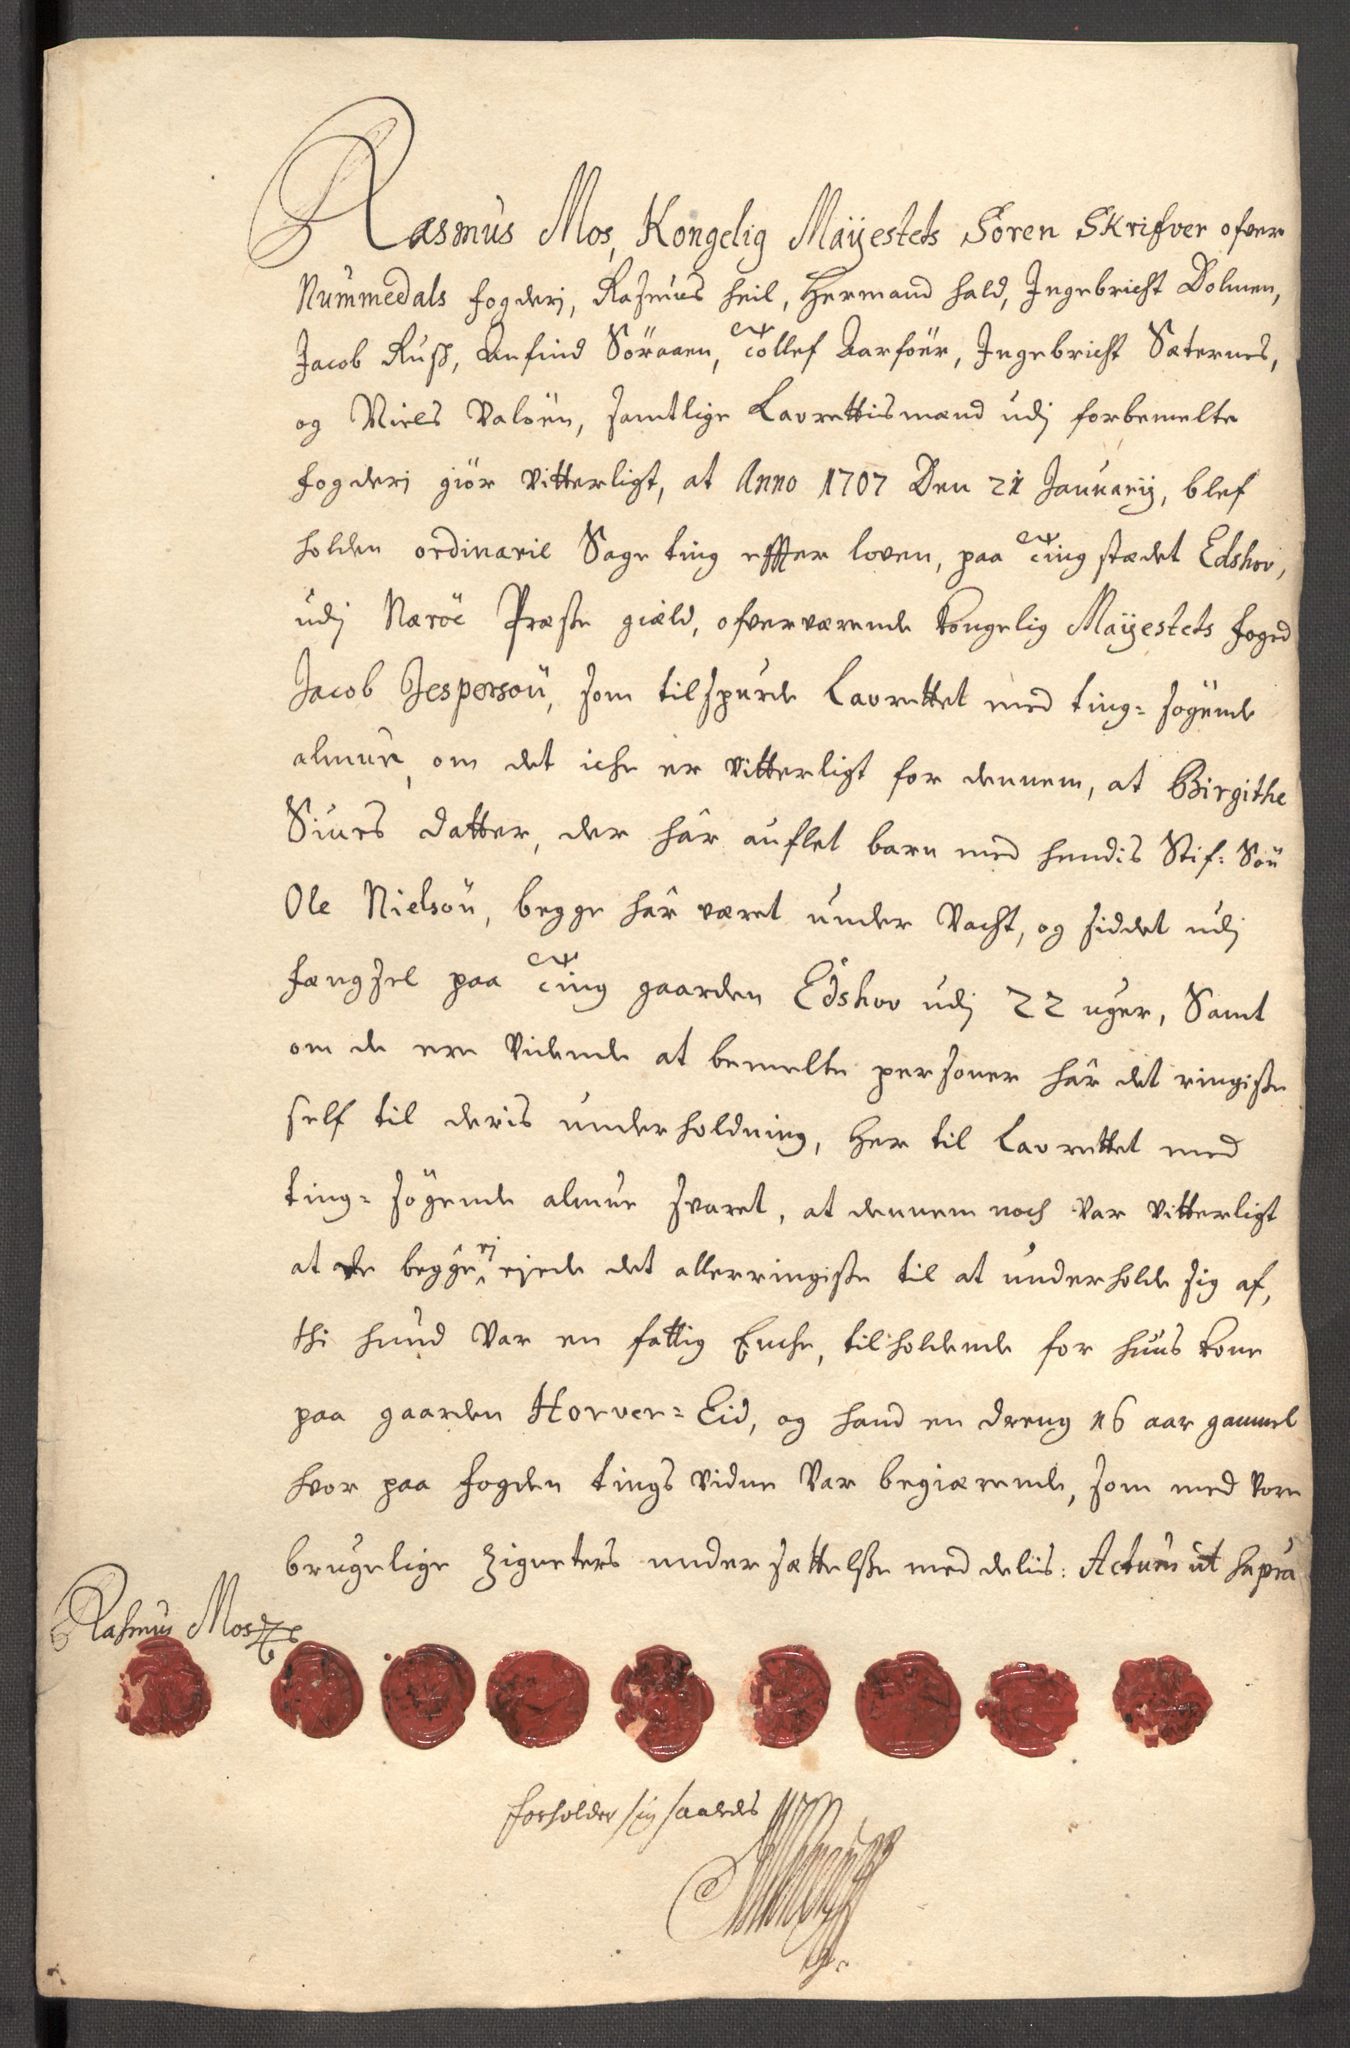 Rasmus Mos, Kongelig Maÿestets Soren Skrifver ofver
Nummedals fogderj, Rasmus heil, Hermand hald, Ingebricht Dolmen,
Jacob Rusß, Anfind Söraaen, Tollef Aarföer, Ingebricht Sæternes,
og Niels Valöen, samtlige Laurettismænd udj forbemelte
fogderj giör vitterligt, at Anno 1707 Den 21 Januarij, blef
holden ordinarie Sage ting effter loven, paa Ting stædet Edshov,
udj Næröe Præste gield, ofverværende kongelig Maÿestets foged
Jacob Jespersön, som tilspurde Laurettet med ting-sögende
almue, om det iche er vitterligt for dennem, at Birgithe
Siurs datter, der hâr auflet barn med hendis Stif-Sön
Ole Nielsön, begge hâr været under Vacht, og siddet udj
fængsel paa Ting gaarden Edshov udj 22 uger, Samt
om de ere vidende at bemelte personer hâr det ringiste
self til deris underholdning, Her til Laurettet med
ting-sögende almue svaret, at dennem noch var vitterligt
at de begge ej ejede det allerringiste til at underholde sig af,
thi hund var en fattig Enche, tilholdende for huus kone
paa gaarden Horver-Eid, og hand en dreng 16 aar gammel
hvor paa fogden tings vidne var begiærende, som med vore
brugelige Zigneters undersættelsße med delis: Actum ut supra
Rasmus Mos
forholder sig saaledes